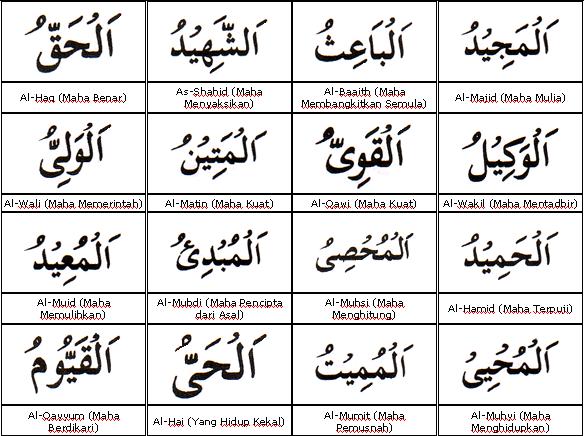 اَلْمَجِيْدُ
Al-Majid (Maha Mulia)
اَلْبَاعِثُ
Al-Baaith (Maha
Membangkitkan Semula)
اَلشَّهِيْدُ
As-Shahid (Maha
Menyaksikan)
اَلْحَقُّ
Al-Haq (Maha Benar)
اَلْوَكِيْلُ
Al-Wakil (Maha Mentadbir)
اَلْقَوِىُّ
Al-Qawi (Maha Kuat)
اَلْمَتِيْنُ
Al-Matin (Maha Kuat)
اَلْوَلِىُّ
Al-Wali (Maha Memerintah)
اَلْحَمِيْدُ
Al-Hamid (Maha Terpuji)
اَلْمُحْصِىُ
Al-Muhsi (Maha
Menghitung)
اَلْمُبْدِئُ
Al-Mubdi (Maha Pencipta
dari Asal)
اَلْمُعِيْدُ
Al-Muid (Maha
Memulihkan)
اَلْمُحْيِىُ
Al-Muhyi (Maha
Menghidupkan)
اَلْمُمِيْتُ
Al-Mumit (Maha
Pemusnah)
اَلْحَىُّ
Al-Hai (Yang Hidup Kekal)
اَلْقَيُّوْمُ
Al-Qayyum (Maha
Berdikari)